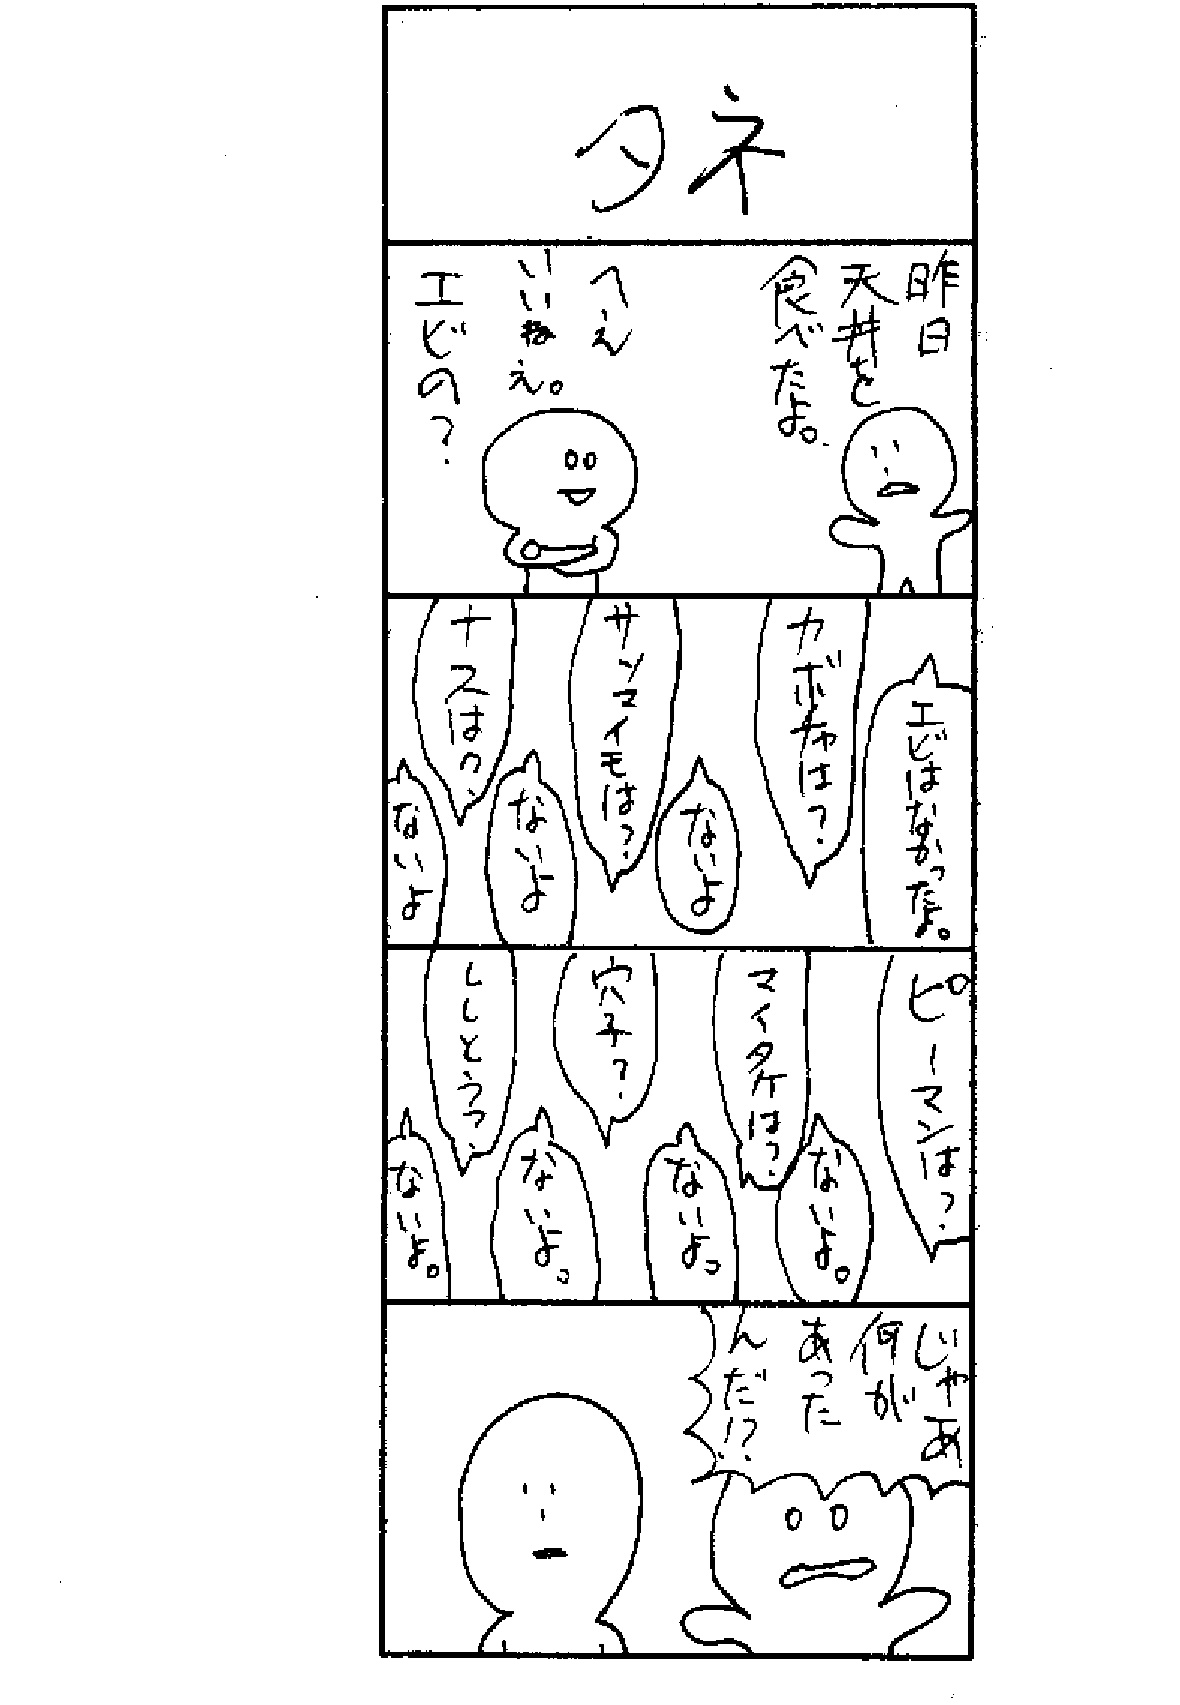 タネ
昨日
天丼を
食べたよ。
へえ
いいねえ。
エビの？
エビはなかったよ。
カボチャは？
ないよ
サツマイモは？
ないよ
ナスは？
ないよ
ピーマンは？
ないよ。
マイタケは？
ないよ。
穴子？
ないよ。
ししとう？
ないよ。
じゃあ
何が
あった
んだ!?